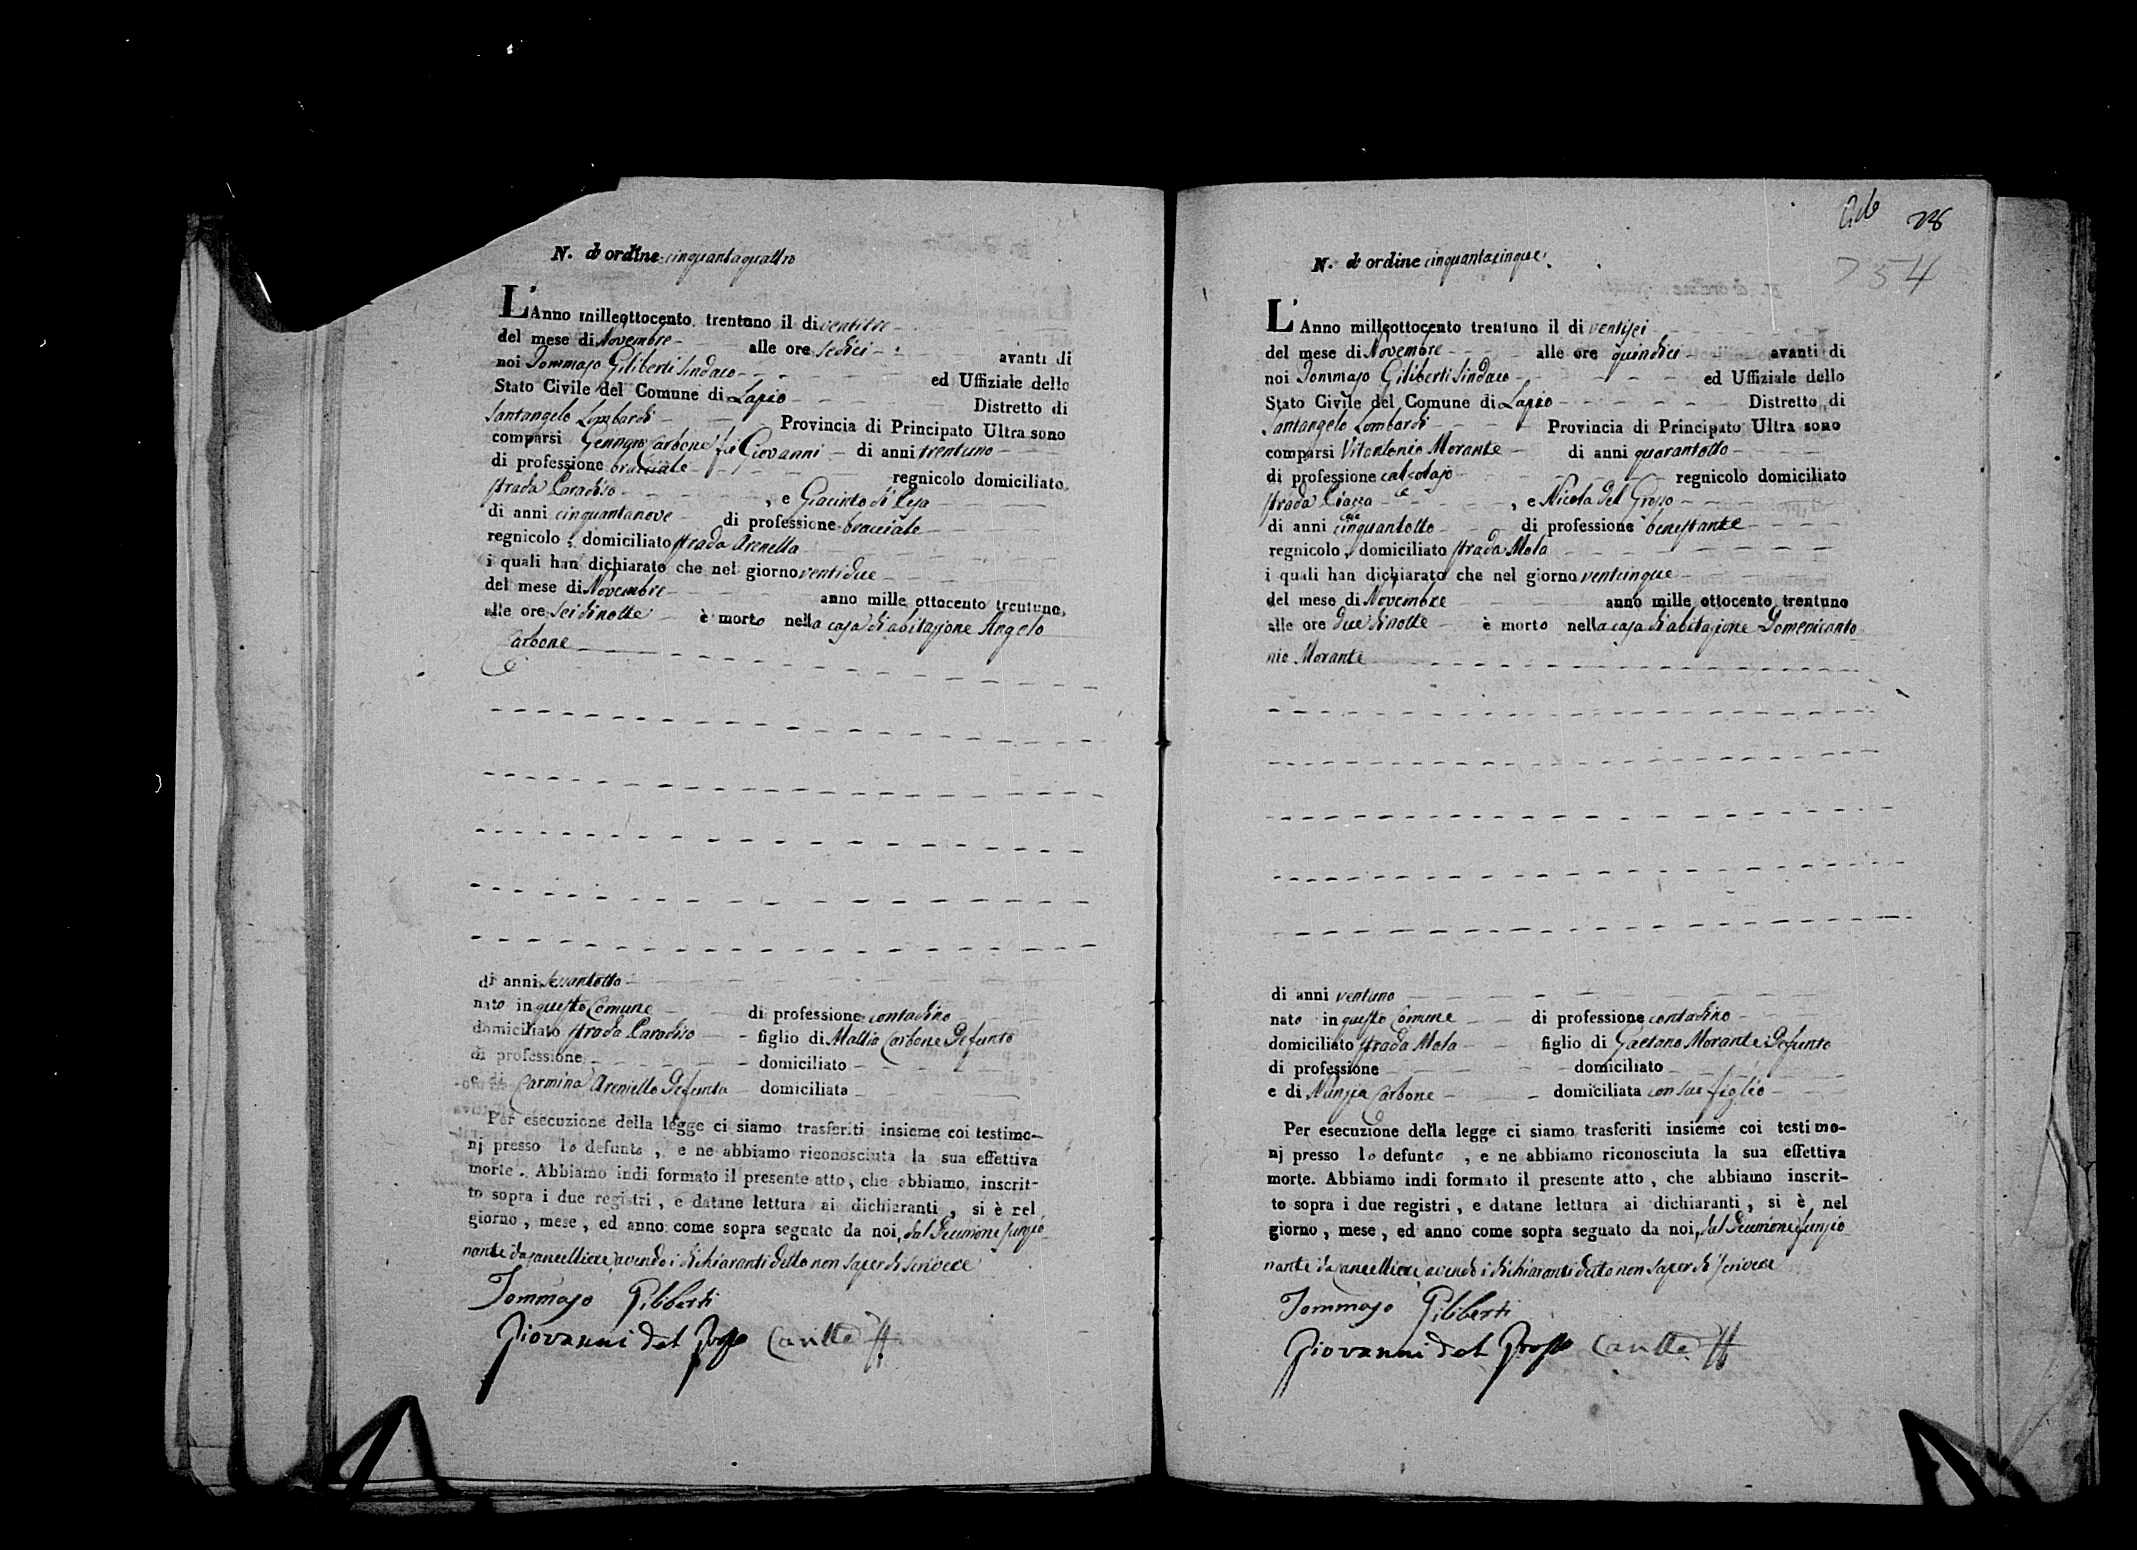 N. d'ordine cinquantaquattro
L'Anno milleottocento trentuno il di ventitre
del mese di Novembre alle ore sedici avanti di
noi Tommaso Giliberti Sindaco ed Uffiziale dello
Stato Civile del Comune di Lapio Distretto di
Santangelo Lombardi Provincia di Principato Ultra sono
comparsi Gennaro Carbone fu Giovanni di anni trentuno
di professione bracciale regnicolo domiciliato
strada Paradiso , e Giacinto di Pesa
di anni cinquantanove di professione bracciale
regnicolo, domiciliato strada Arenella
i quali han dichiarato che nel giorno ventidue
del mese di Novembre anno mille ottocento trentuno,
alle ore sei di notte è morto nella casa di abitazione Angelo
Carbone
di anni sessantotto
nato in questo Comune di professione contadino
domiciliato strada Paradiso figlio di Mattia Carbone Defunto
di professione domiciliato
e di Carmina Areniello Defunta domiciliata
Per esecuzione della legge ci siamo trasferiti insieme coi testimo-
nj presso lo defunto , e ne abbiamo riconosciuta la sua effettiva
morte. Abbiamo indi formato il presente atto, che abbiamo inscrit-
to sopra i due registri, e datane lettura ai dichiaranti, si è nel
giorno, mese, ed anno come sopra segnato da noi, dal Decurione funzio
nante da Cancelliere, avendo i dichiaranti detto non saper di scrivere
Tommaso Giliberti
Giovanni del Grosso
Acto 28
754
N. d'ordine cinquantacinque
L'Anno milleottocento trentuno il di ventisei
del mese di Novembre alle ore quindici avanti di
noi Tommaso Giliberti Sindaco ed Uffiziale dello
Stato Civile del Comune di Lapio Distretto di
Santangelo Lombardi Provincia di Principato Ultra sono
comparsi Vitantonio Morante di anni quarantotto
di professione calzolajo regnicolo domiciliato
strada Piazza , e Nicola del Grosso
di anni cinquantotto di professione benestante
regnicolo, domiciliato strada Mola
i quali han dichiarato che nel giorno venticinque
del mese di Novembre anno mille ottocento trentuno
alle ore due di notte è morto nella casa di abitazione Domenicanto
nio Morante
di anni ventuno
nato in questo Comune di professione contadino
domiciliato strada Mola figlio di Gaetano Morante Defunto
di professione domiciliato
e di Nunzia Carbone domiciliata con suo figlio
Per esecuzione della legge ci siamo trasferiti insieme coi testimo-
nj presso lo defunto , e ne abbiamo riconosciuta la sua effettiva
morte. Abbiamo indi formato il presente atto, che abbiamo inscrit-
to sopra i due registri, e datane lettura ai dichiaranti, si è nel
giorno, mese, ed anno come sopra segnato da noi, dal Decurione funzio
nante da Cancelliere, avendo i dichiaranti detto non saper di scrivere
Tommaso Giliberti
Giovanni del Grosso